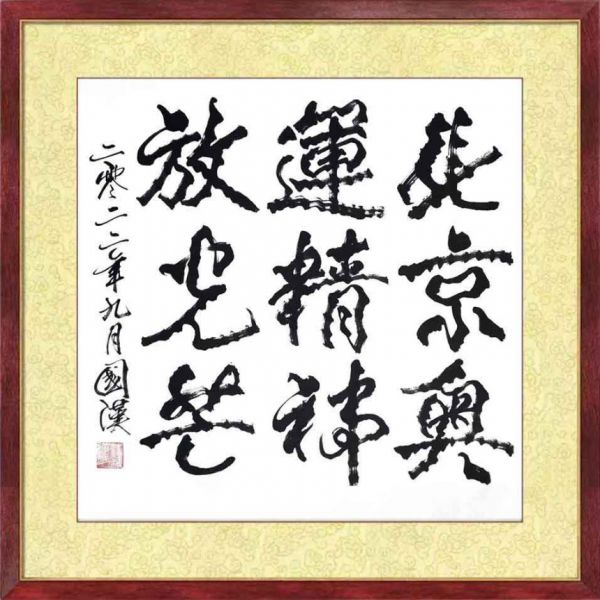 北京奥
運精神
放光芒
二零二二年九月國漢